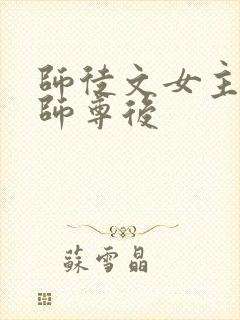 師徒文女主
師尊後
蘇雪晶